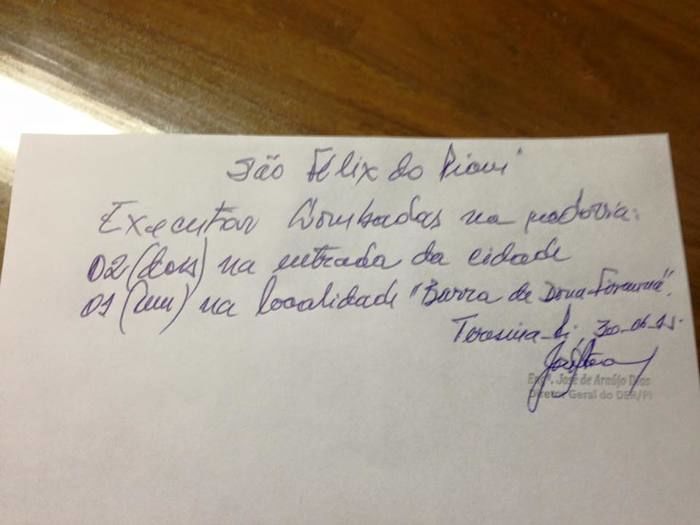 São Félix do Piauí
Executar Lombadas na rodovia:
02 (dois) na entrada da cidade
01 (um) na localidade "Barra de Dona
Teresina-Pi, 30-06-15.
Engº. José de Araújo Dias
Diretor Geral do DER/PI